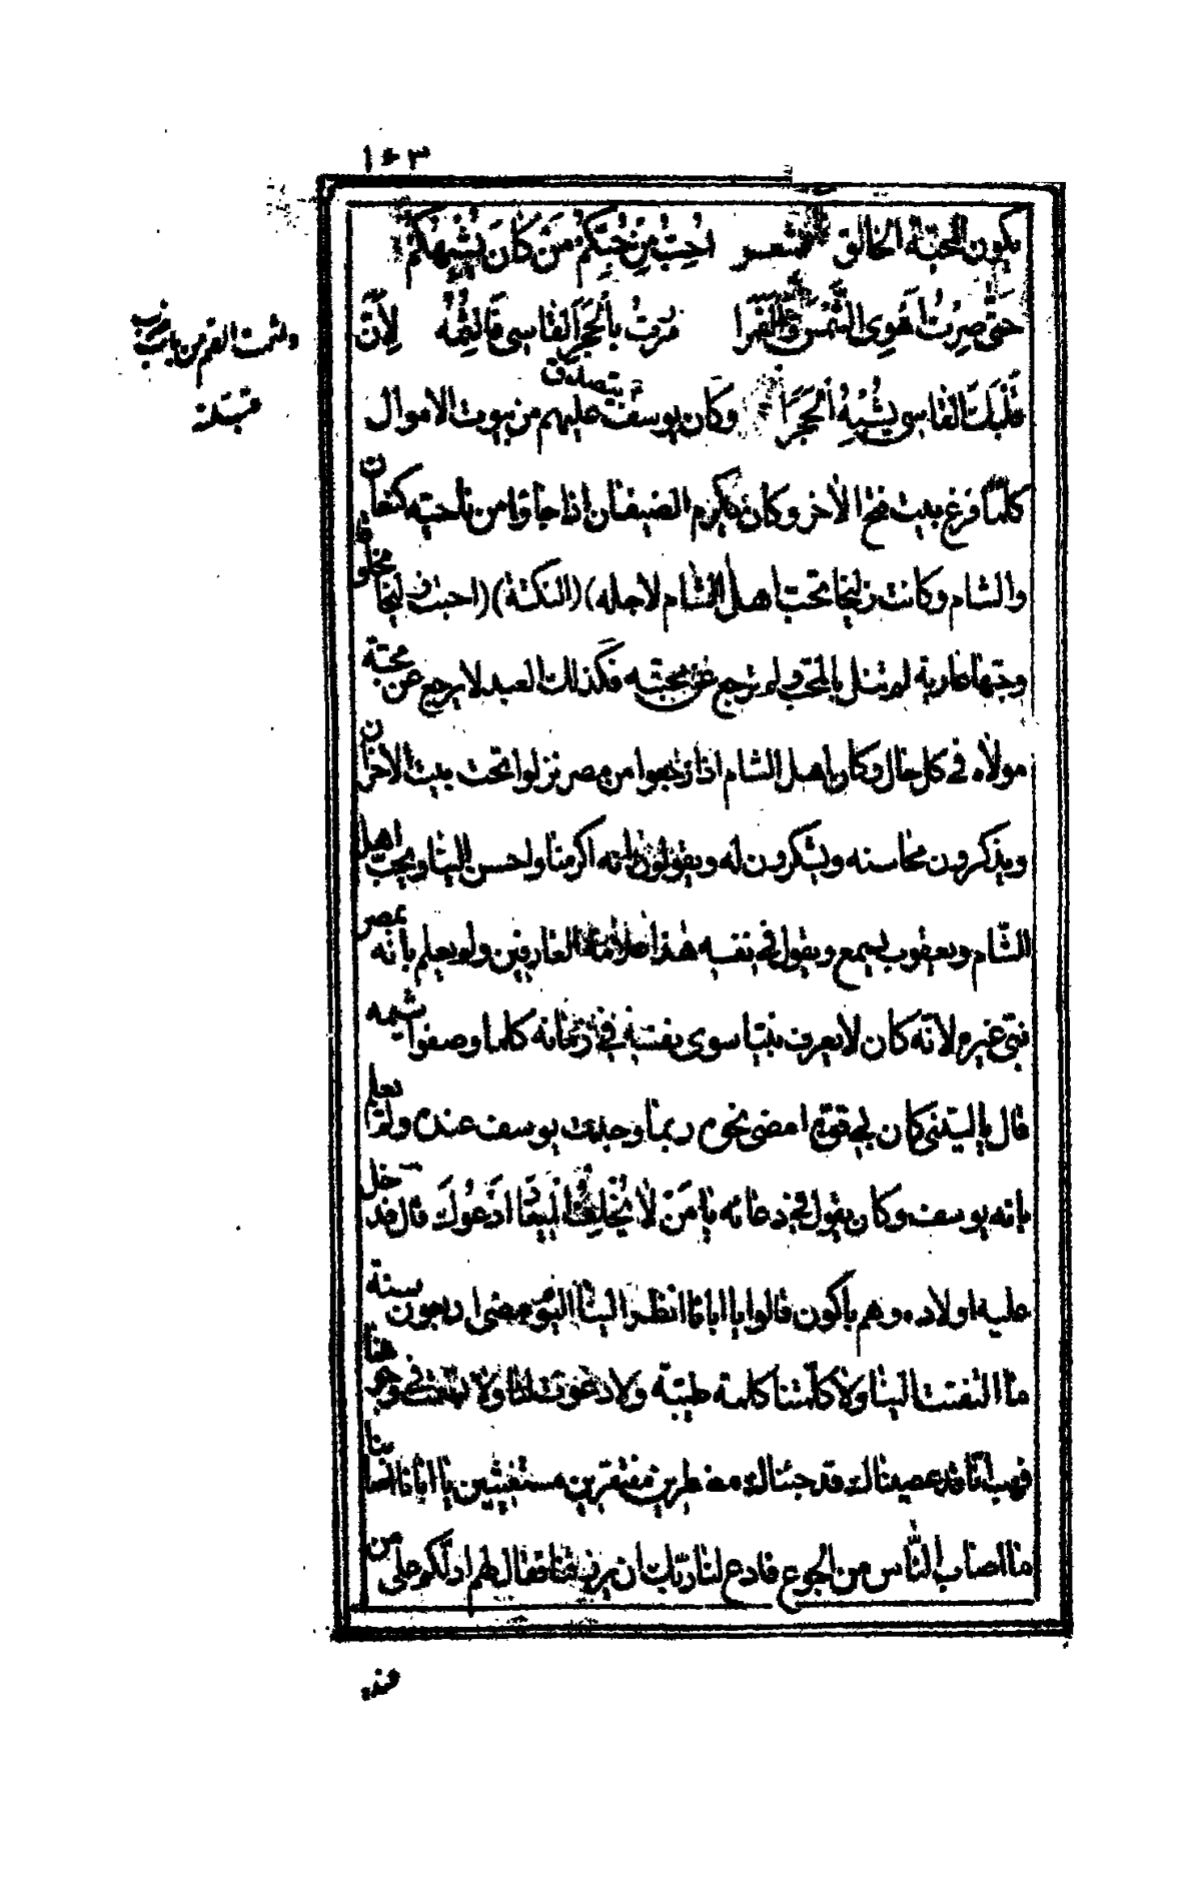 ١٠٣
يكون المحبة الخالق شعر احب من حبكم من كان يشبهكم
حتى صرت اهوى الشمس والقمرا مررت بالحجر القاسى فالثمه لان
قلبك القاسى يشبه الحجرا وكان يوسف يتصدق عليهم من بيوت الاموال
ولثمت الفم من باب ضرب
قبلته
كلما فرغ بيت فتح الاخر وكان يكرم الضيفان اذا جاؤا من ناحيته كنعان
والشام وكانت زليخا تحب اهل الشام لاجله) (النكتة) (احبت زليخا مخلوقا
وحبها عارية لم تنل بالمحب ولم ترجع عن محبته فكذلك العبد لا يرجع عن محبة
مولاه فى كل حال وكان اهل الشام اذا رجعوا من مصر نزلوا تحت بيت الاحزان
ويذكرون محاسنه ويشكرون له ويقولون انه اكرمنا واحسن الينا ويحب اهل
الشام ويعقوب يسمع ويقول فى نفسه هذا علامة العارفين ولم يعلم بانه بمصر
نبى غيره لانه كان لا يعرف نبيا سوى نفسه فى زمانه كلما وصفوا شيمه
قال يا ليتنى كان بى قوة امضى نحوه ربما وجدت يوسف عنده ولم يعلم
بانه يوسف وكان يقول فى دعائه يا من لا يخلف الميعاد ادعوك قال فدخل
عليه اولاده وهم باكون قالوا يا ابانا انظر الينا اليوم مضى اربعون سنة
ما التفت الينا ولا كلمتنا كلمة طيبة ولا دعوت لنا ولا نظرت فى وجوهنا
فهب انا قد عصيناك قد جئناك مضطرين مفتقرين مستغيثين يا ابانا اصابنا
ما اصاب الناس من الجوع فادع لنا ربك ان يرزقنا فقال لهم ادلكم على من